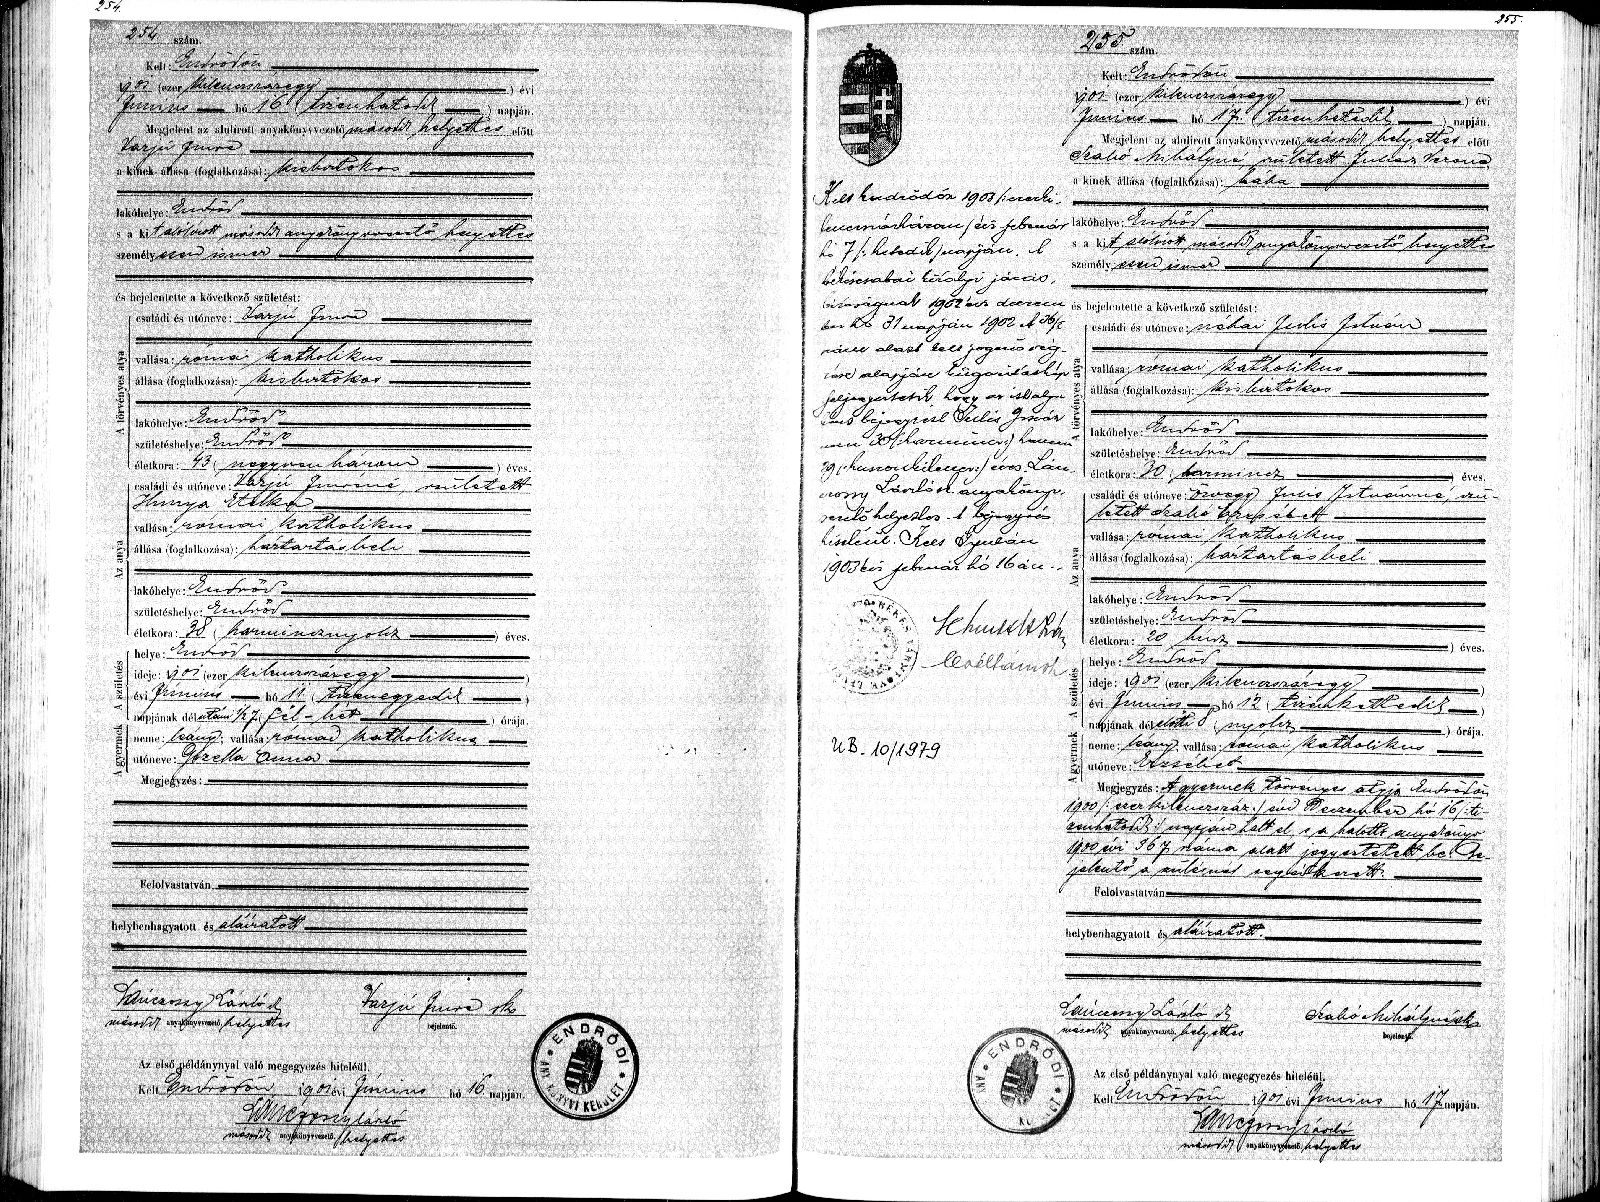 254.
254 szám.
Kelt: Endrődön
1901 (ezer kilencszázegy) évi
Június hó 16 (tizenhatodik) napján.
Megjelent az alulirott anyakönyvvezető második helyettes előtt
Varjú Imre
a kinek állása (foglalkozása): kisbirtokos
lakóhelye: Endrőd
s a kit alulirott második anyakönyvvezető helyettes
személyesen ismer
és bejelentette a következő születést:
A törvényes atya
családi és utóneve: Varjú Imre
vallása: római katholikus
állása (foglalkozása): kisbirtokos
lakóhelye: Endrőd
születéshelye: Endrőd
életkora: 43 (negyvenhárom) éves.
Az anya
családi és utóneve: Varjú Imréné, született
Hunya Etelka
vallása: római katholikus
állása (foglalkozása): háztartásbeli
lakóhelye: Endrőd
születéshelye: Endrőd
életkora: 38 (harmincznyolcz) éves.
A gyermek A születés
helye: Endrőd
ideje: 1901 (ezer kilencszázegy)
évi Június hó 11. (tizenegyedik)
napjának délutáni ½7 (fél-hét) órája.
neme: leány; vallása: római katholikus
utóneve: Gizella Anna
Megjegyzés:
Felolvastatván,
helybenhagyatott és aláiratott
Lánczossy László sk Varjú Imre sk
második anyakönyvvezető, helyettes bejelentő.
Az első példánynyal való megegyezés hiteléül.
Kelt Endrődön 1901 évi Június hó 16 napján.
Lánczossy László
második anyakönyvvezető, helyettes
ENDRŐDI ANYAKÖNYVI KERÜLET
255.
255 szám.
Kelt: Endrődön
1901 (ezer kilencszázegy) évi
Június hó 17. (tizenhetedik) napján.
Megjelent az alulirott anyakönyvvezető második helyettes előtt
Szabó Mihályné született Juhász Verona
a kinek állása (foglalkozása): bába
lakóhelye: Endrőd
s a kit alulirott második anyakönyvvezető helyettes
személyesen ismer
és bejelentette a következő születést:
A törvényes atya
családi és utóneve: néhai Julis István
vallása: római katholikus
állása (foglalkozása): kisbirtokos
lakóhelye: Endrőd
születéshelye: Endrőd
életkora: 30 harmincz éves.
Az anya
családi és utóneve: özvegy Julis Istvánné, szü-
letett Szabó Erzsébet
vallása: római katholikus
állása (foglalkozása): háztartásbeli
lakóhelye: Endrőd
születéshelye: Endrőd
életkora: 20 húsz éves.
A gyermek A születés
helye: Endrőd
ideje: 1901 (ezer kilencszázegy)
évi Június hó 12 (tizenkettedik)
napjának délelőtti 8 (nyolcz) órája.
neme: leány vallása: római katholikus
utóneve: Erzsébet
Megjegyzés: A gyermek törvényes atyja Endrődön
1900 /: ezerkilencszáz :/ évi Deczember hó 16 /: ti-
zenhatodik :/ napján halt el, s a halotti anyakönyv
1900 évi 367 száma alatt jegyeztetett be. Be-
jelentő a szülésnél segédkezett.
Felolvastatván
helybenhagyatott és aláiratott.
Lánczossy László sk Szabó Mihályné sk
második anyakönyvvezető, helyettes bejelentő.
Az első példánynyal való megegyezés hiteléül.
Kelt Endrődön 1901 évi Június hó 17 napján.
Lánczossy László
második anyakönyvvezető, helyettes
ENDRŐDI
Kelt Endrődön 1903 /: ezerki-
lencszázhárom / évi február
hó 7 /: hetedik / napján. A
békéscsabai királyi járás-
bíróságnak 1902 évi decem
ber hó 31 napján 1902
száma alatt kelt jogerős vég-
zése alapján kiigazitaskép
feljegyeztetik, hogy az
bejegyzésl Julis István
nem 30 (harmincz) hanem
29 (: huszonkilencz :) éves. Lán-
czossy László sk. anyakönyv-
vezető helyettes. A bejegyzés
hiteléül. Kelt Gyulán
1903 évi február hó 16 án.
UB. 10/1979